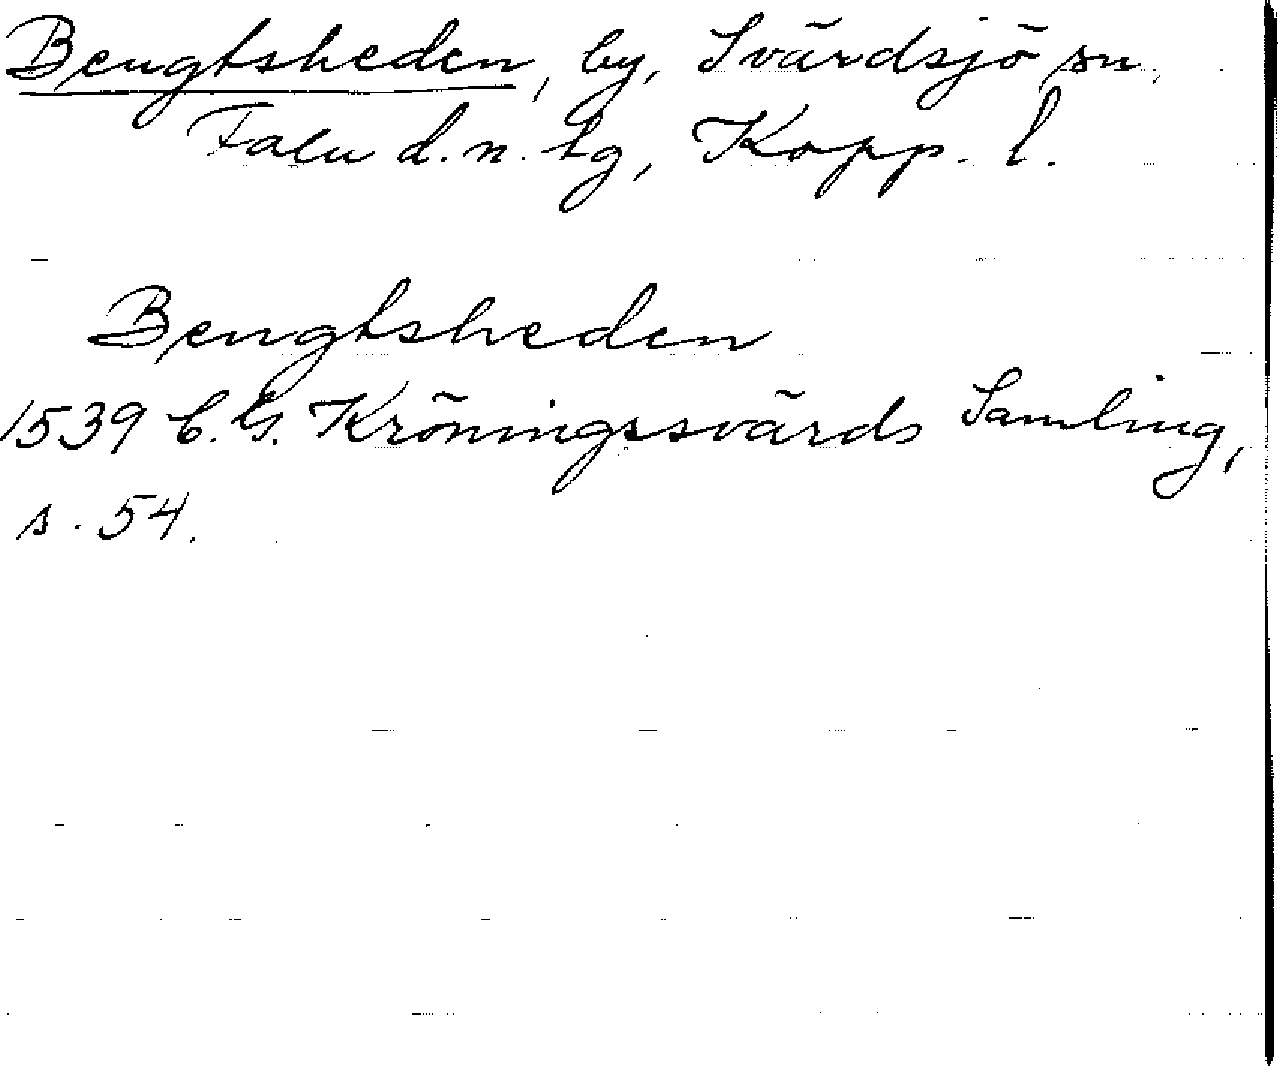 Bengtsheden, by, Svärdsjö sn,
Falu d.n. tg, Kopp. l.
Bengtsheden
1539 C. G. Kröningssvärds Samling,
s. 54.